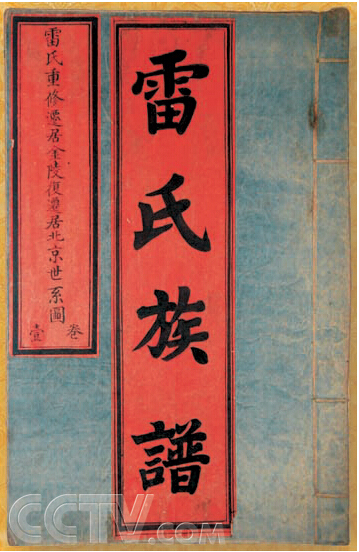 雷氏族譜
雷氏重修遷居金陵復遷居北京世系圖
卷
壹
CCTV.COM